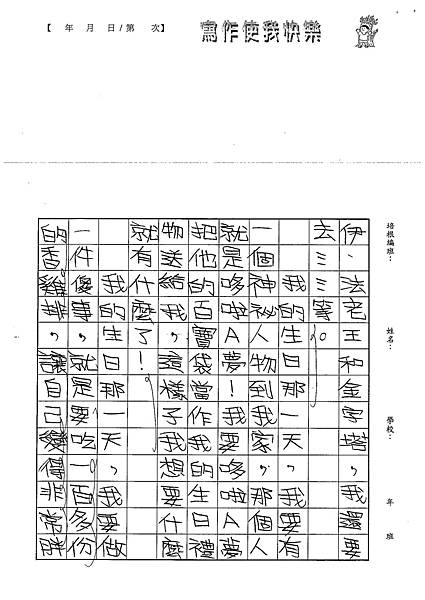 【 年 月 日/第 次】
寫作使我快樂
培根編班： 姓名： 學校： 年 班
伊、法老王和金字塔，我還要
去等。
我的生日那一天，我要有
一個神祕人物到我家，那個人
就是哆啦A夢！我要哆啦A夢
把他的百寶袋當作我的生日禮
物送給我，這樣子我想要什麼
就有什麼了！
我的生日那一天，我要做
一件傻事，就是要吃一百多份
的香雞排，讓自己變得非常胖